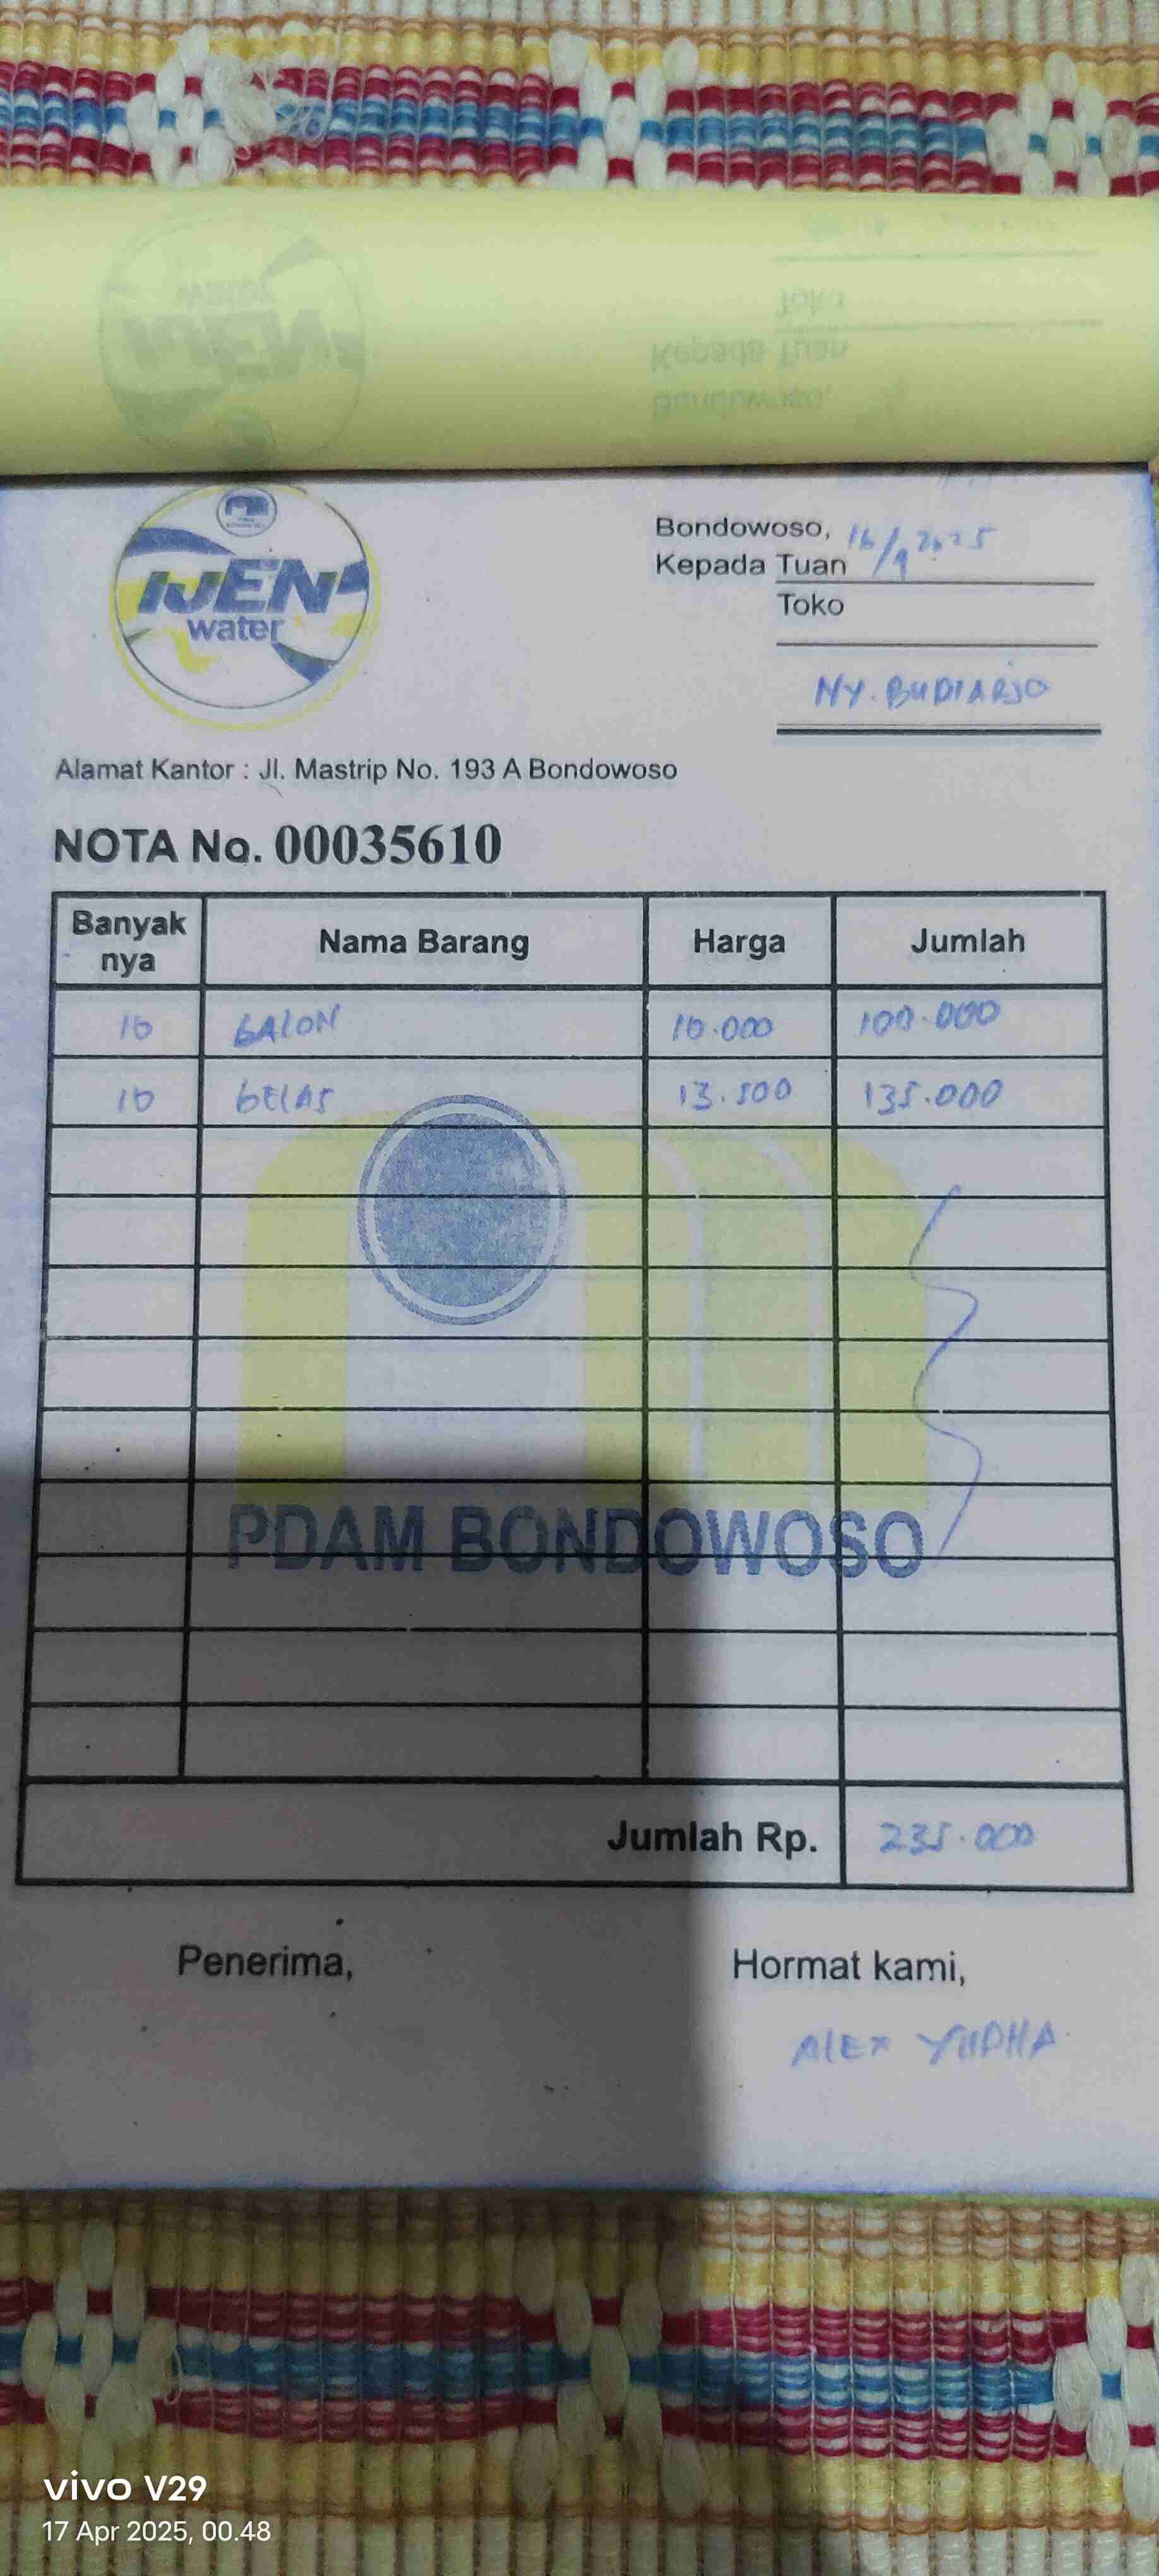 IJEN
water
Bondowoso, 16/4 2025
Kepada Tuan
Toko
NY. BUDIARJO
Alamat Kantor : Jl. Mastrip No. 193 A Bondowoso
NOTA No. 00035610
Banyak nya Nama Barang Harga Jumlah
10 GALON 10.000 100.000
10 GELAS 13.500 135.000
PDAM BONDOWOSO
Jumlah Rp. 235.000
Penerima, Hormat kami,
ALEX YUDHA
vivo V29
17 Apr 2025, 00.48